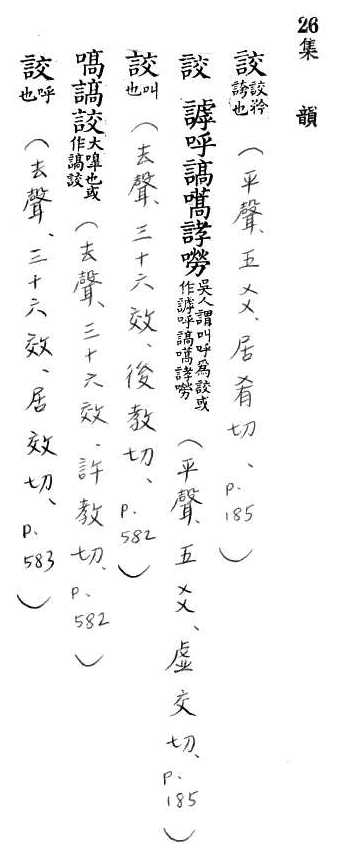 26 集韻
詨 詨矜誇也 (平聲、五爻、居肴切、p.185)
詨 謼呼謞嚆誟嘮 吳人謂叫呼爲詨或作謼呼謞嚆誟嘮 (平聲、五爻、虛交切、p.185)
詨 叫也 (去聲、三十六效、後教切、p.582)
嗃謞詨 大嘷也或作謞詨 (去聲、三十六效、許教切、p.582)
詨 呼也 (去聲、三十六效、居效切、p.583)